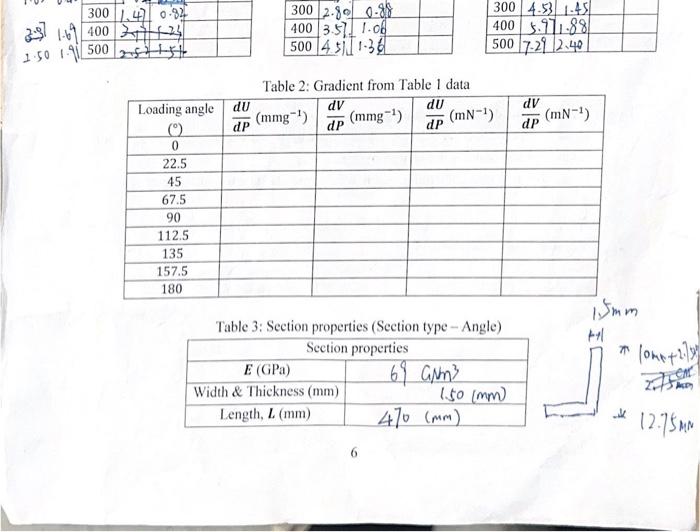 300 1.47 0.82 300 2.80 0.88 300 4.53 1.45
1.69 400 400 3.57 1.06 400 5.97 1.88
2.50 1.91 500 500 4.51 1.36 500 7.29 2.40
Table 2: Gradient from Table 1 data
Loading angle (°) dU/dP (mmg⁻¹) dV/dP (mmg⁻¹) dU/dP (mN⁻¹) dV/dP (mN⁻¹)
0
22.5
45
67.5
90
112.5
135
157.5
180
1.5mm
Table 3: Section properties (Section type – Angle)
Section properties
E (GPa) 69
Width & Thickness (mm) 1.50 (mm)
Length, L (mm) 470 (mm)
12.75mm
6